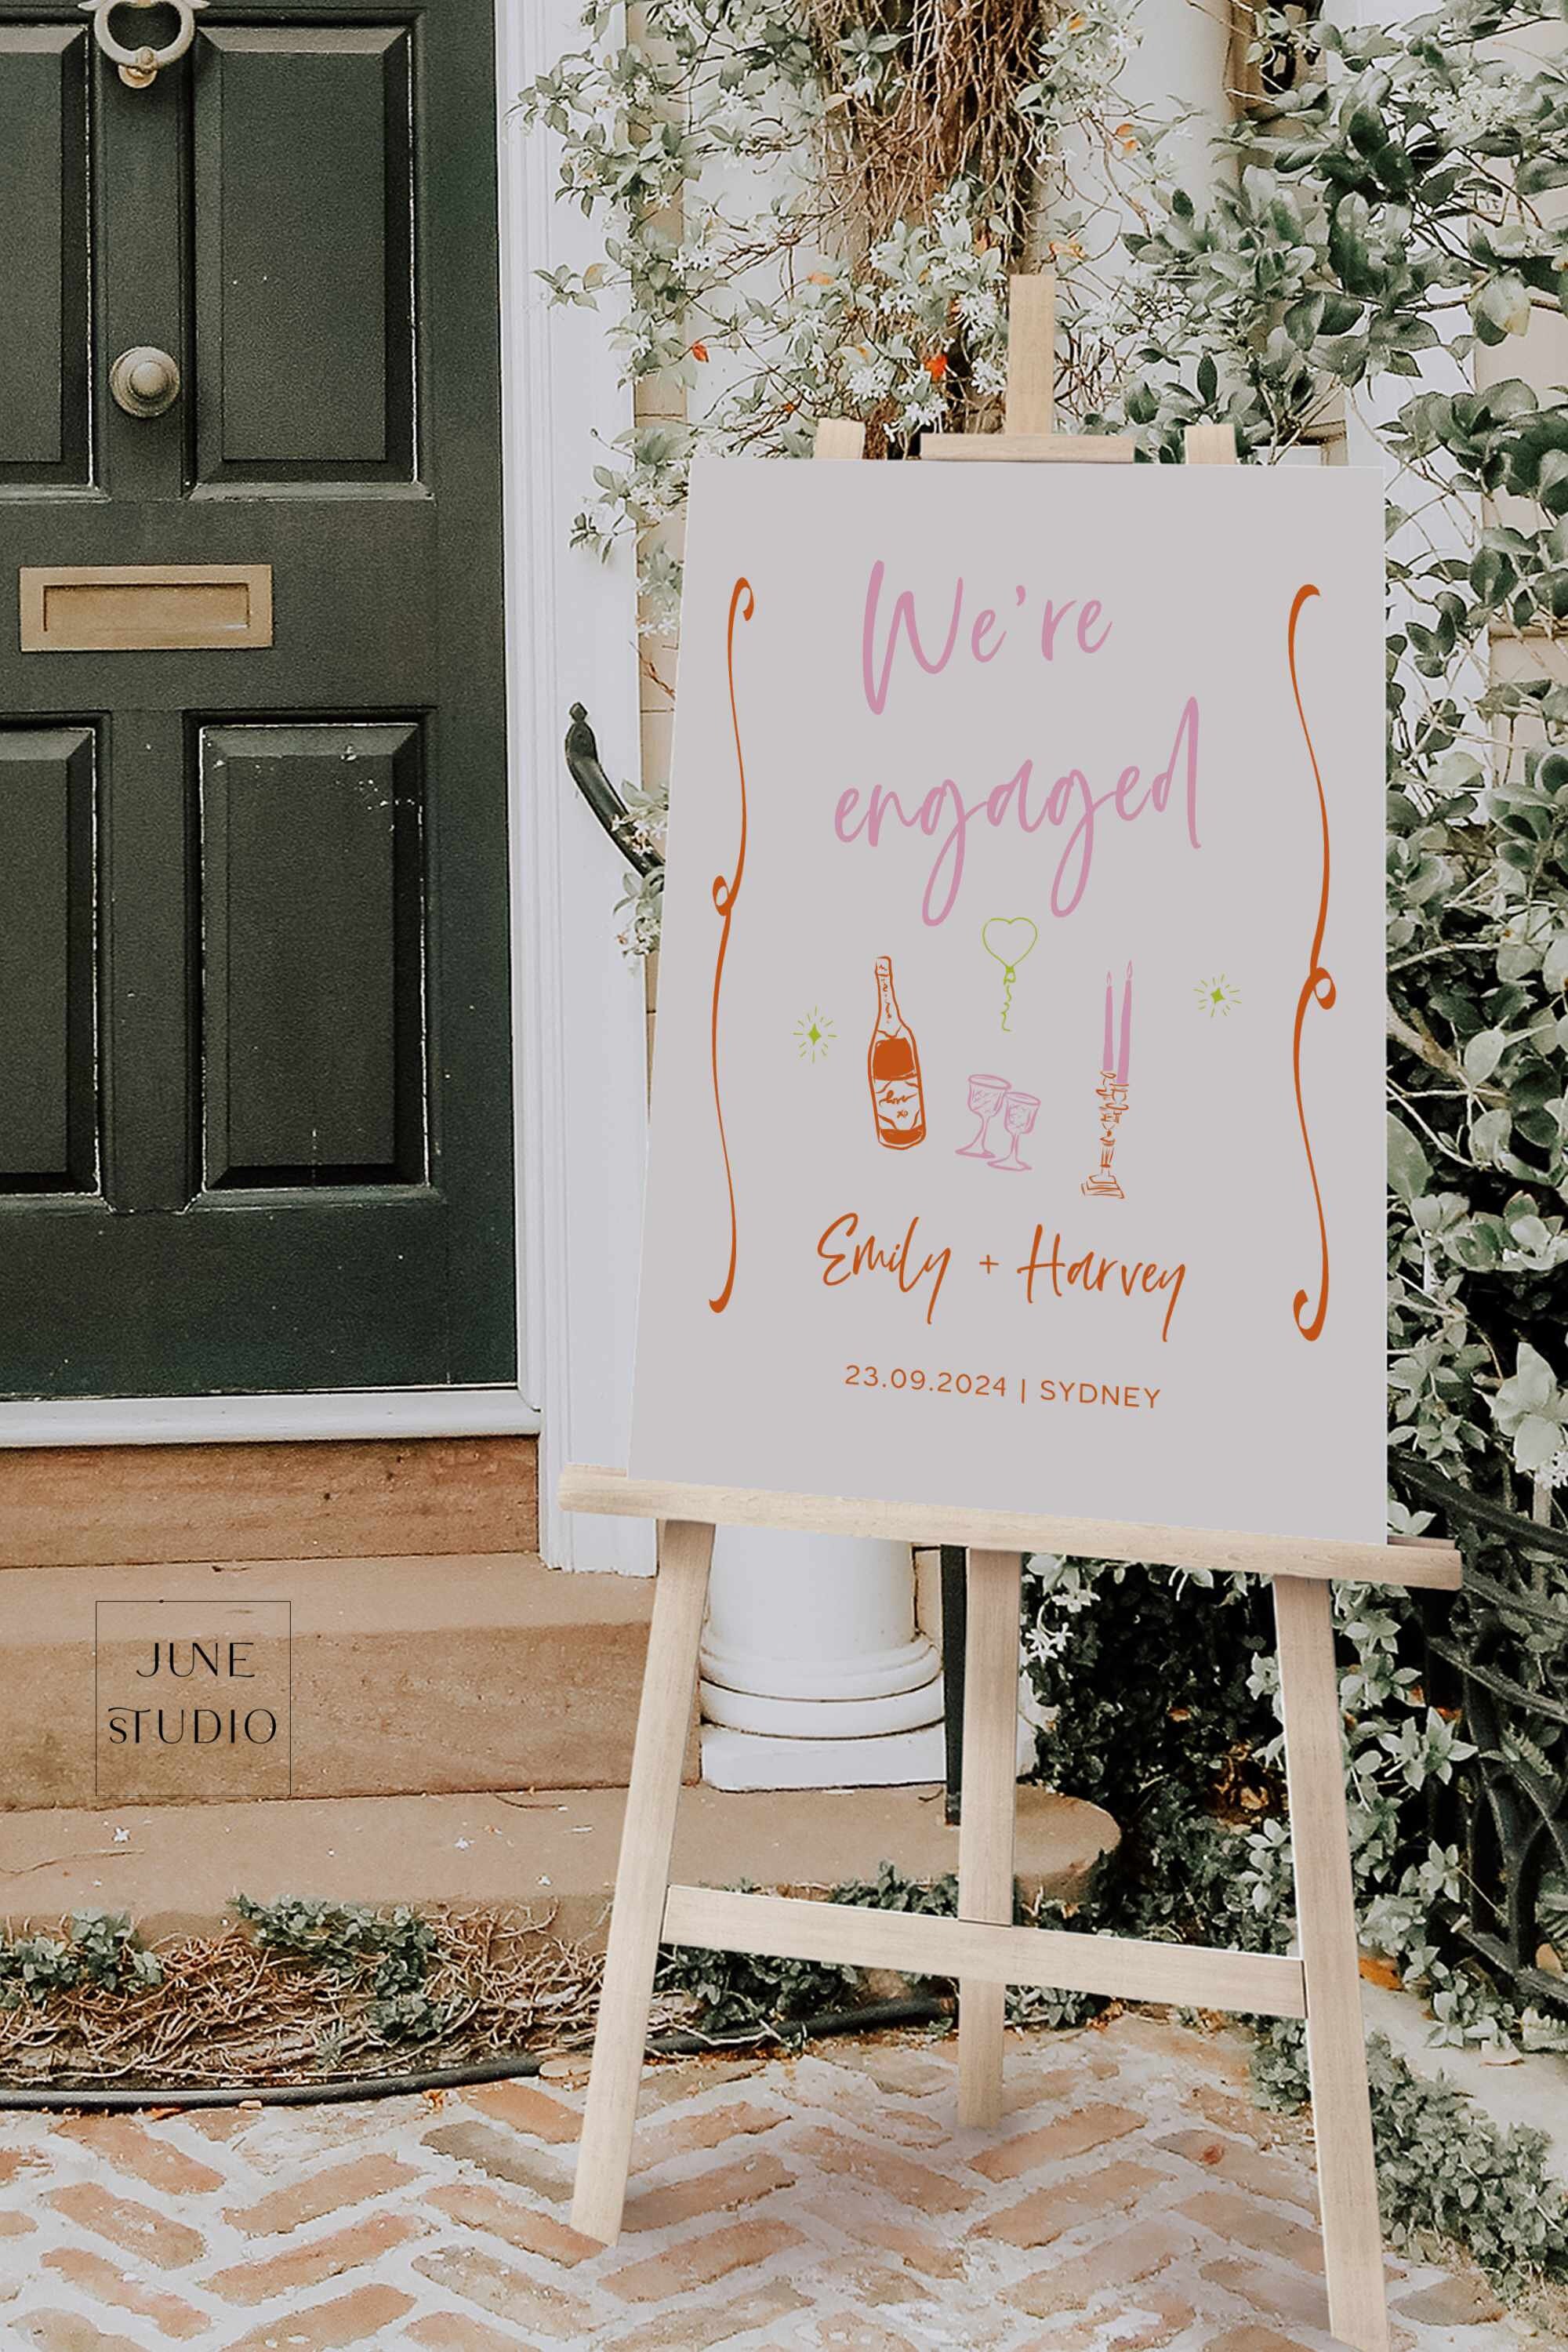 We're
engaged
love
xo
Emily + Harvey
23.09.2024 | SYDNEY
JUNE
STUDIO